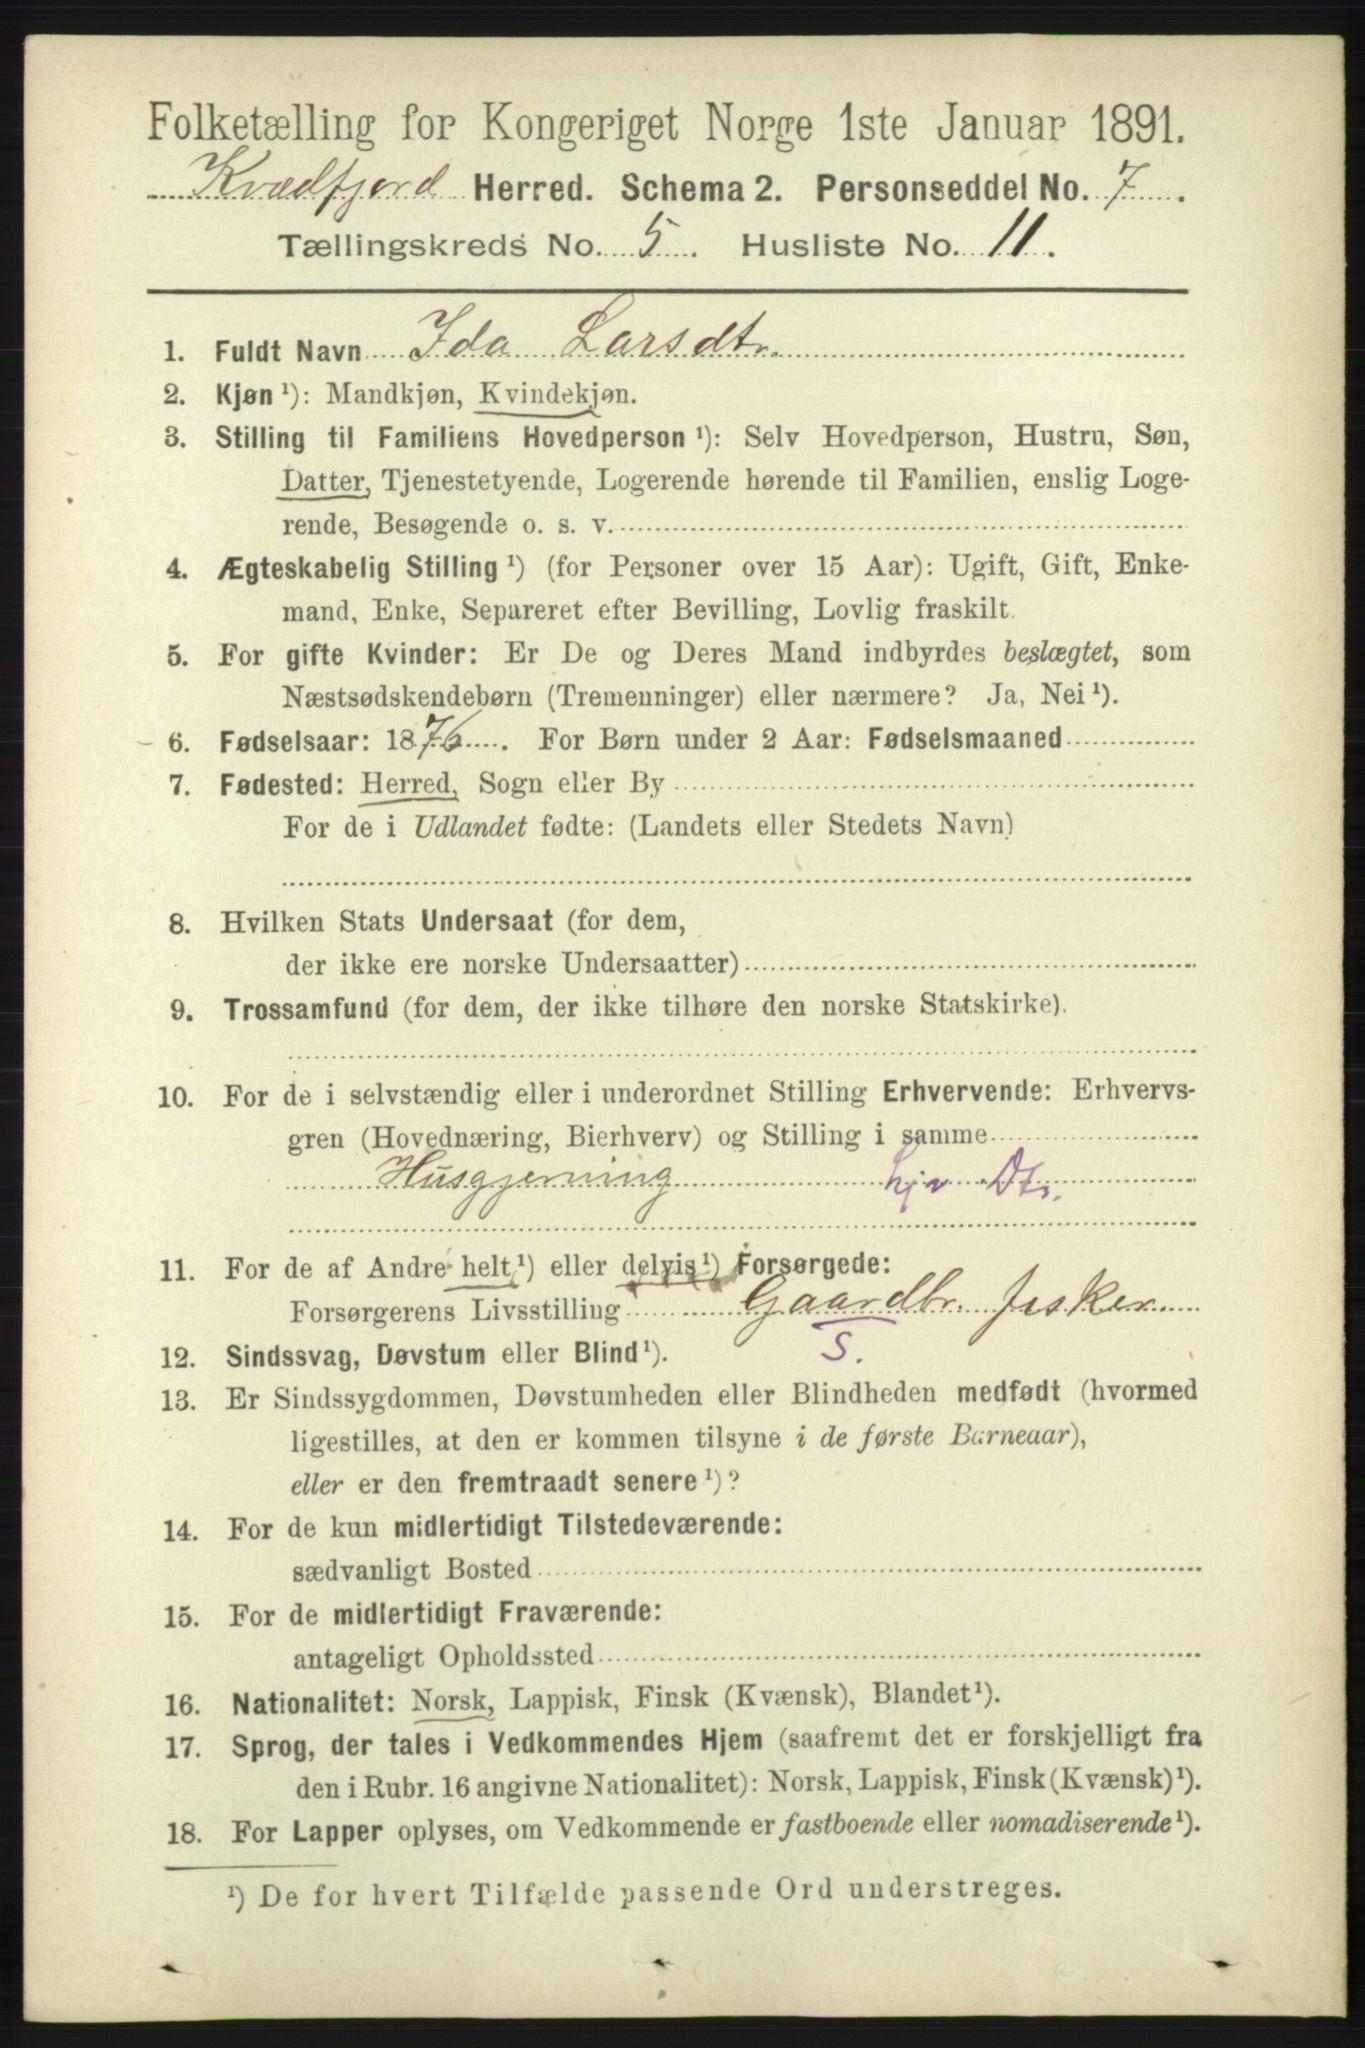 Folketælling for Kongeriget Norge 1ste Januar 1891.
Kvædfjord Herred. Schema 2. Personseddel No. 7.
Tællingskreds No. 5. Husliste No. 11.
1. Fuldt Navn Ida Larsdtr.
2. Kjøn ¹): Mandkjøn, Kvindekjøn.
3. Stilling til Familiens Hovedperson ¹): Selv Hovedperson, Hustru, Søn,
Datter, Tjenestetyende, Logerende hørende til Familien, enslig Loge-
rende, Besøgende o. s. v.
4. Ægteskabelig Stilling ¹) (for Personer over 15 Aar): Ugift, Gift, Enke-
mand, Enke, Separeret efter Bevilling, Lovlig fraskilt.
5. For gifte Kvinder: Er De og Deres Mand indbyrdes beslægtet, som
Næstsødskendebørn (Tremenninger) eller nærmere? Ja, Nei ¹).
6. Fødselsaar: 1876. For Børn under 2 Aar: Fødselsmaaned
7. Fødested: Herred, Sogn eller By
For de i Udlandet fødte: (Landets eller Stedets Navn)
8. Hvilken Stats Undersaat (for dem,
der ikke ere norske Undersaatter)
9. Trossamfund (for dem, der ikke tilhøre den norske Statskirke).
10. For de i selvstændig eller i underordnet Stilling Erhvervende: Erhvervs-
gren (Hovednæring, Bierhverv) og Stilling i samme
Husgjerning hjv Dtr.
11. For de af Andre helt ¹) eller delvis ¹) Forsørgede:
Forsørgerens Livsstilling Gaardbr. fisker
S.
12. Sindssvag, Døvstum eller Blind ¹).
13. Er Sindssygdommen, Døvstumheden eller Blindheden medfødt (hvormed
ligestilles, at den er kommen tilsyne i de første Barneaar),
eller er den fremtraadt senere ¹)?
14. For de kun midlertidigt Tilstedeværende:
sædvanligt Bosted
15. For de midlertidigt Fraværende:
antageligt Opholdssted
16. Nationalitet: Norsk, Lappisk, Finsk (Kvænsk), Blandet ¹).
17. Sprog, der tales i Vedkommendes Hjem (saafremt det er forskjelligt fra
den i Rubr. 16 angivne Nationalitet): Norsk, Lappisk, Finsk (Kvænsk) ¹).
18. For Lapper oplyses, om Vedkommende er fastboende eller nomadiserende ¹).
¹) De for hvert Tilfælde passende Ord understreges.